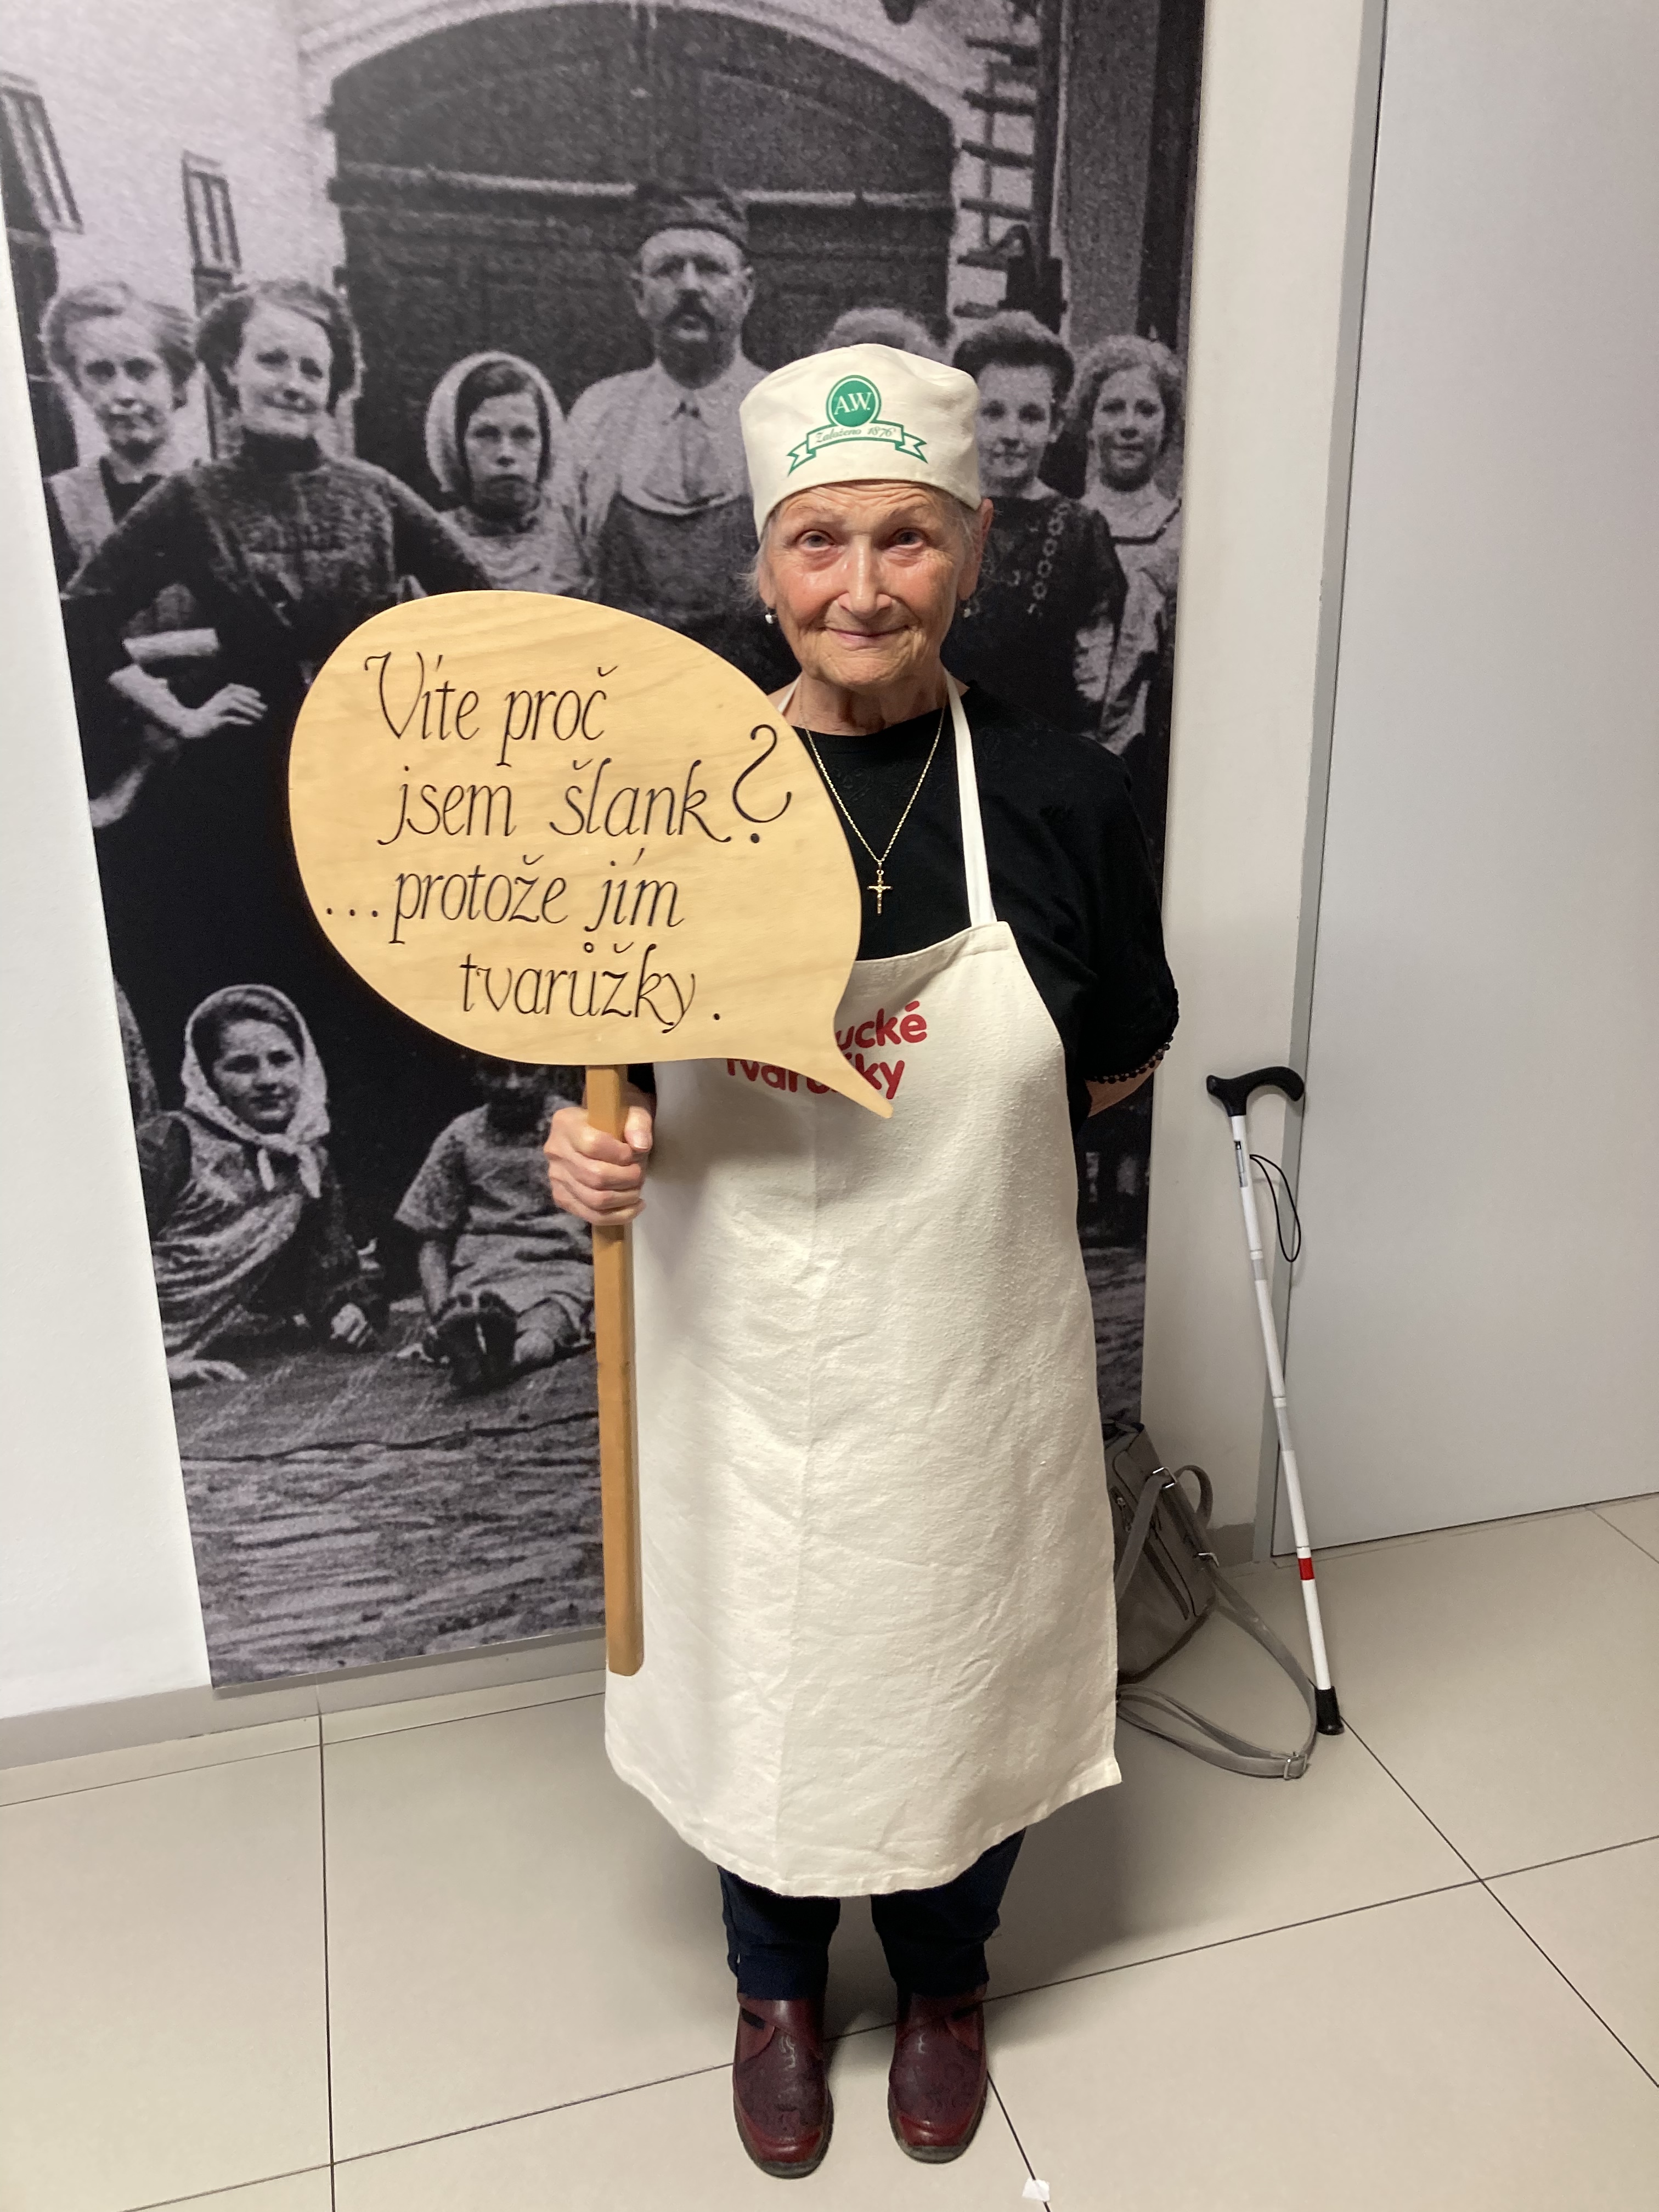 A.W.
Založeno 1876
Víte proč
jsem šlank?
...protože jím
tvarůžky.